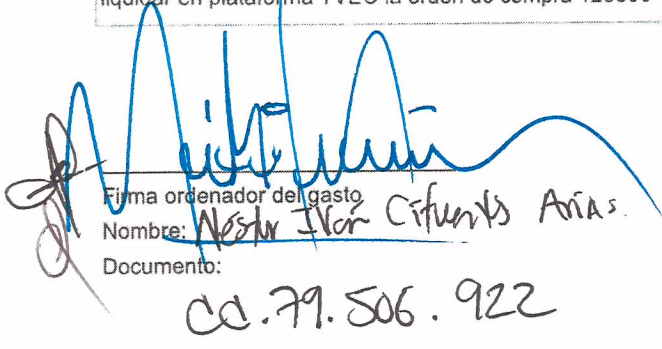 liquidar en plataforma TVEC la orden de compra
Firma ordenador del gasto
Nombre: Néstor Iván Cifuentes Arias.
Documento:
CC. 79. 506. 922